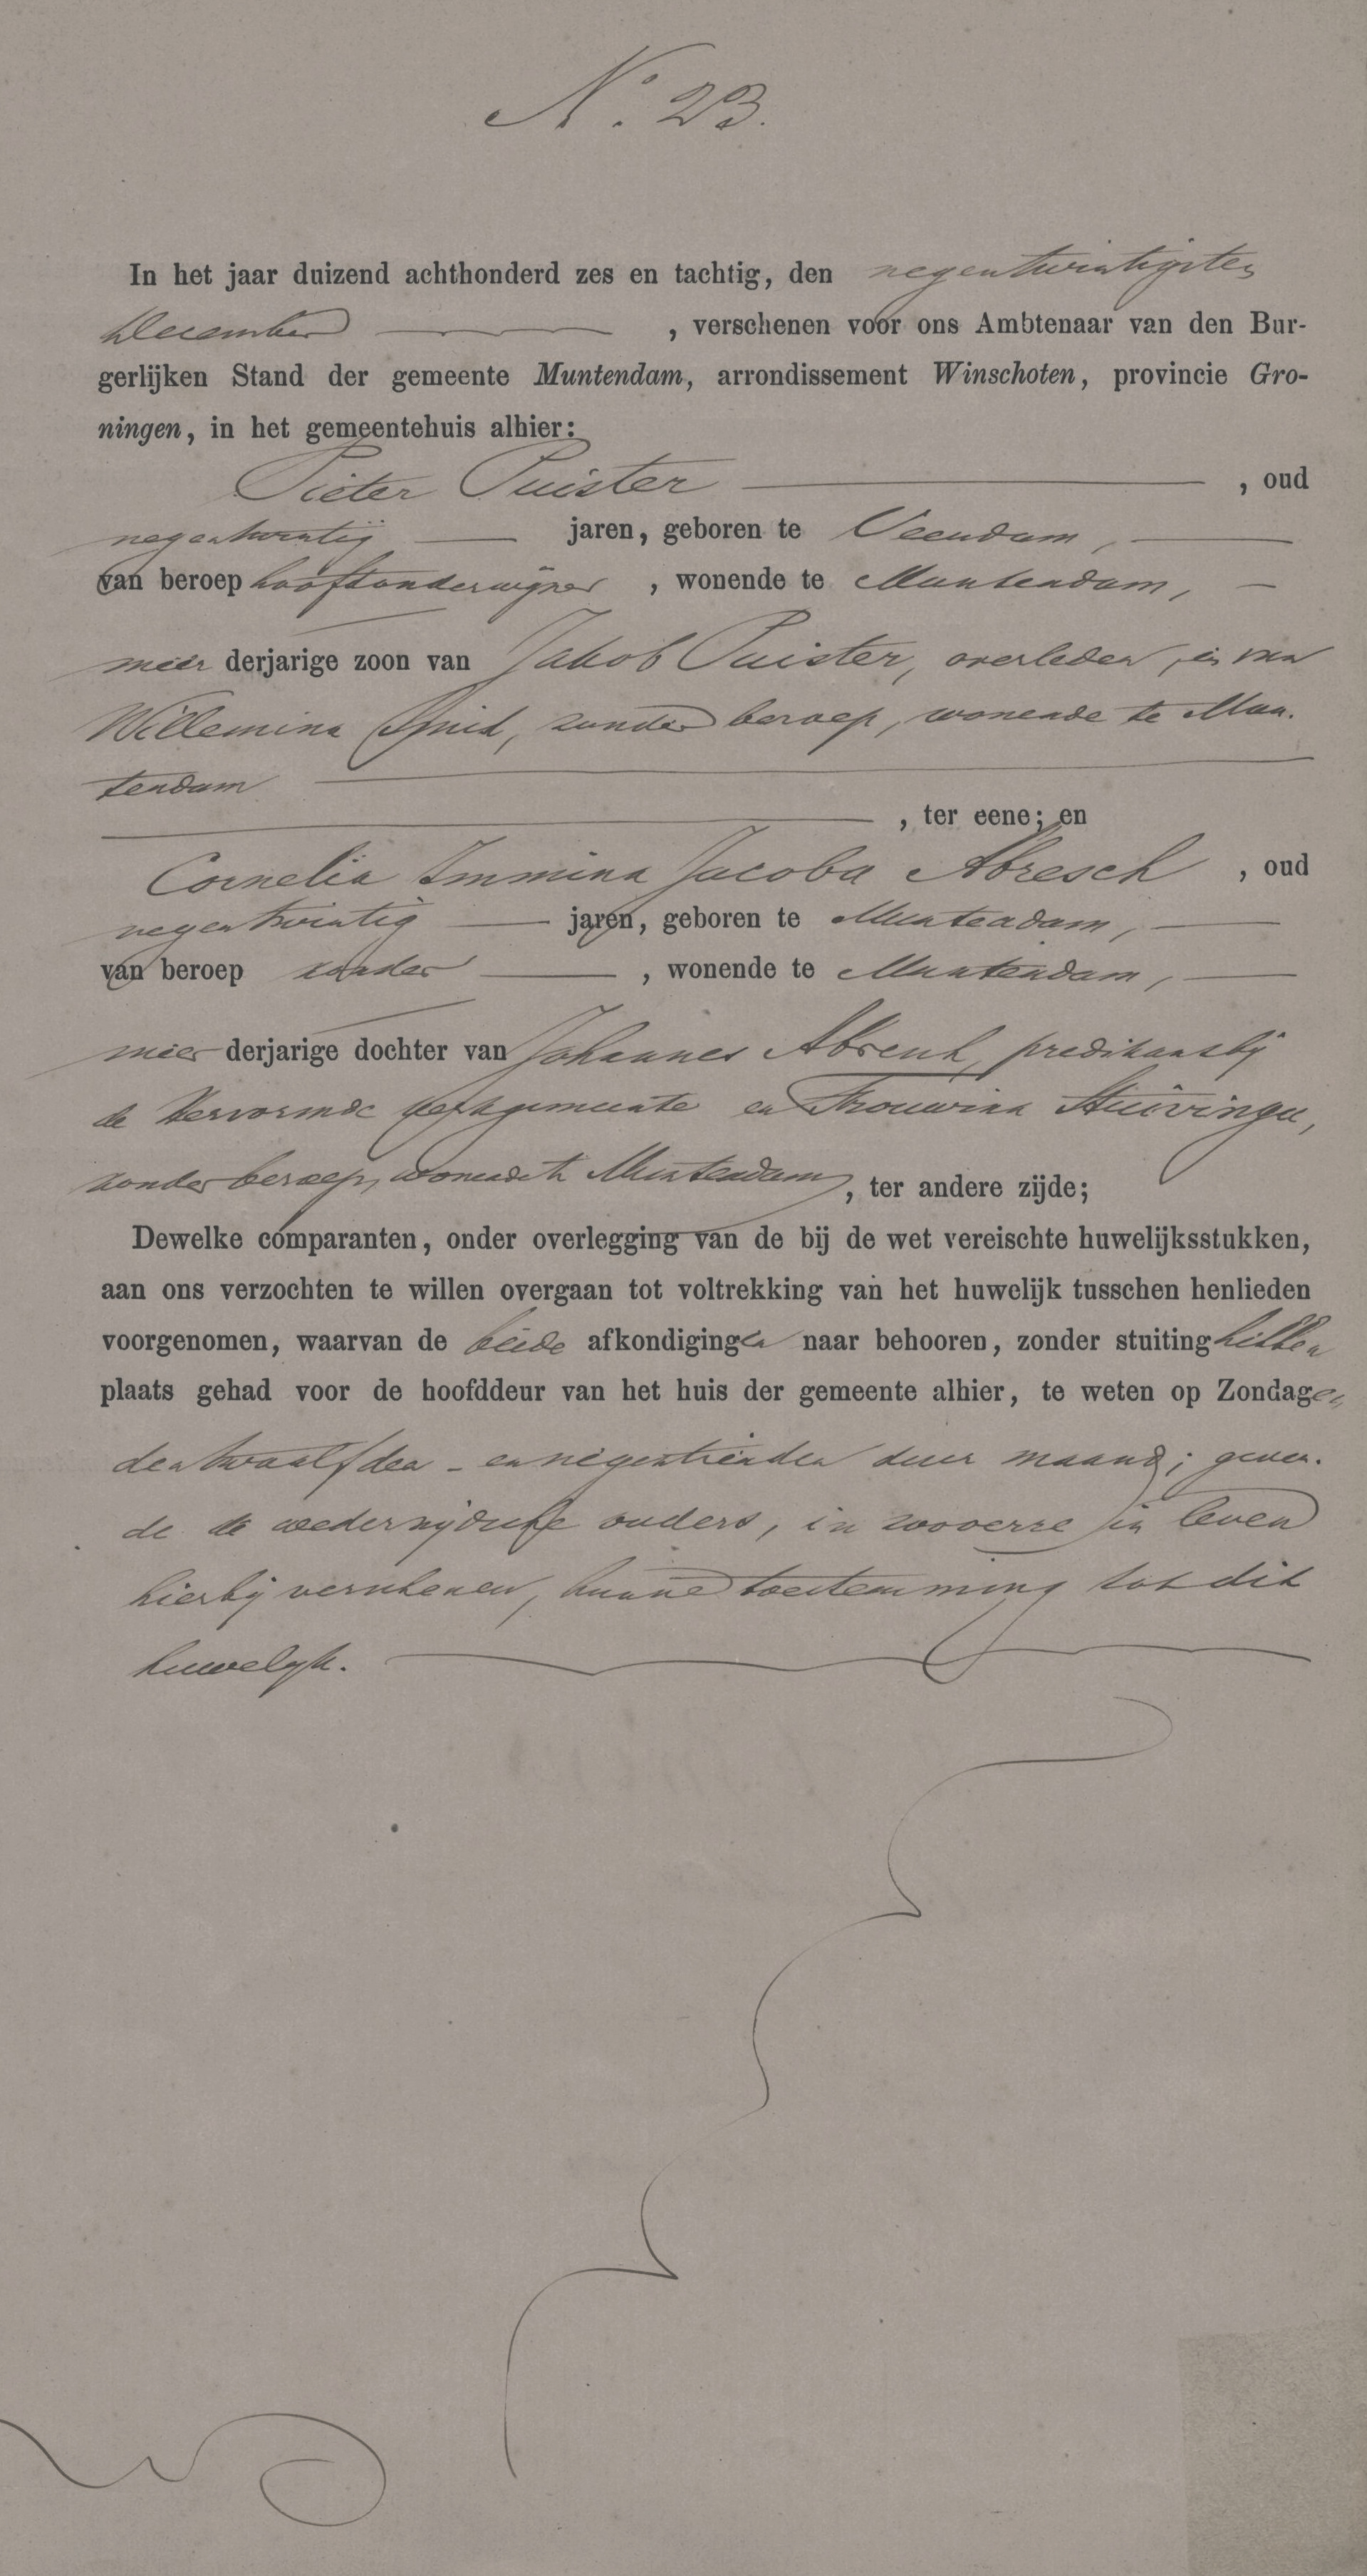 No. 23.
In het jaar duizend achthonderd zes en tachtig, den negentwintigsten
December , verschenen voor ons Ambtenaar van den Bur-
gerlijken Stand der gemeente Muntendam, arrondissement Winschoten, provincie Gro-
ningen, in het gemeentehuis alhier:
Pieter Puister , oud
negentwintig jaren, geboren te Veendam,
van beroep hoofdonderwijzer , wonende te Muntendam,
meer derjarige zoon van Jakob Puister, overleden, en van
Willemina Spiet, zonder beroep, wonende te Mun-
tendam
, ter eene; en
Cornelia Immina Jacoba Abresch , oud
negentwintig jaren, geboren te Muntendam,
van beroep zonder , wonende te Muntendam,
meer derjarige dochter van Johannes Abresch, predikant bij
de Hervormde kerkgemeente en Trouwina Stuivinga,
zonder beroep, wonende te Muntendam, ter andere zijde;
Dewelke comparanten, onder overlegging van de bij de wet vereischte huwelijksstukken,
aan ons verzochten te willen overgaan tot voltrekking van het huwelijk tusschen henlieden
voorgenomen, waarvan de beide afkondigingen naar behooren, zonder stuiting hebben
plaats gehad voor de hoofddeur van het huis der gemeente alhier, te weten op Zondagen
den twaalfden - en negentienden dezer maand; geven-
de de wederzijdsche ouders, in zooverre in leven
hierbij verschenen, hunne toestemming tot dit
huwelijk.